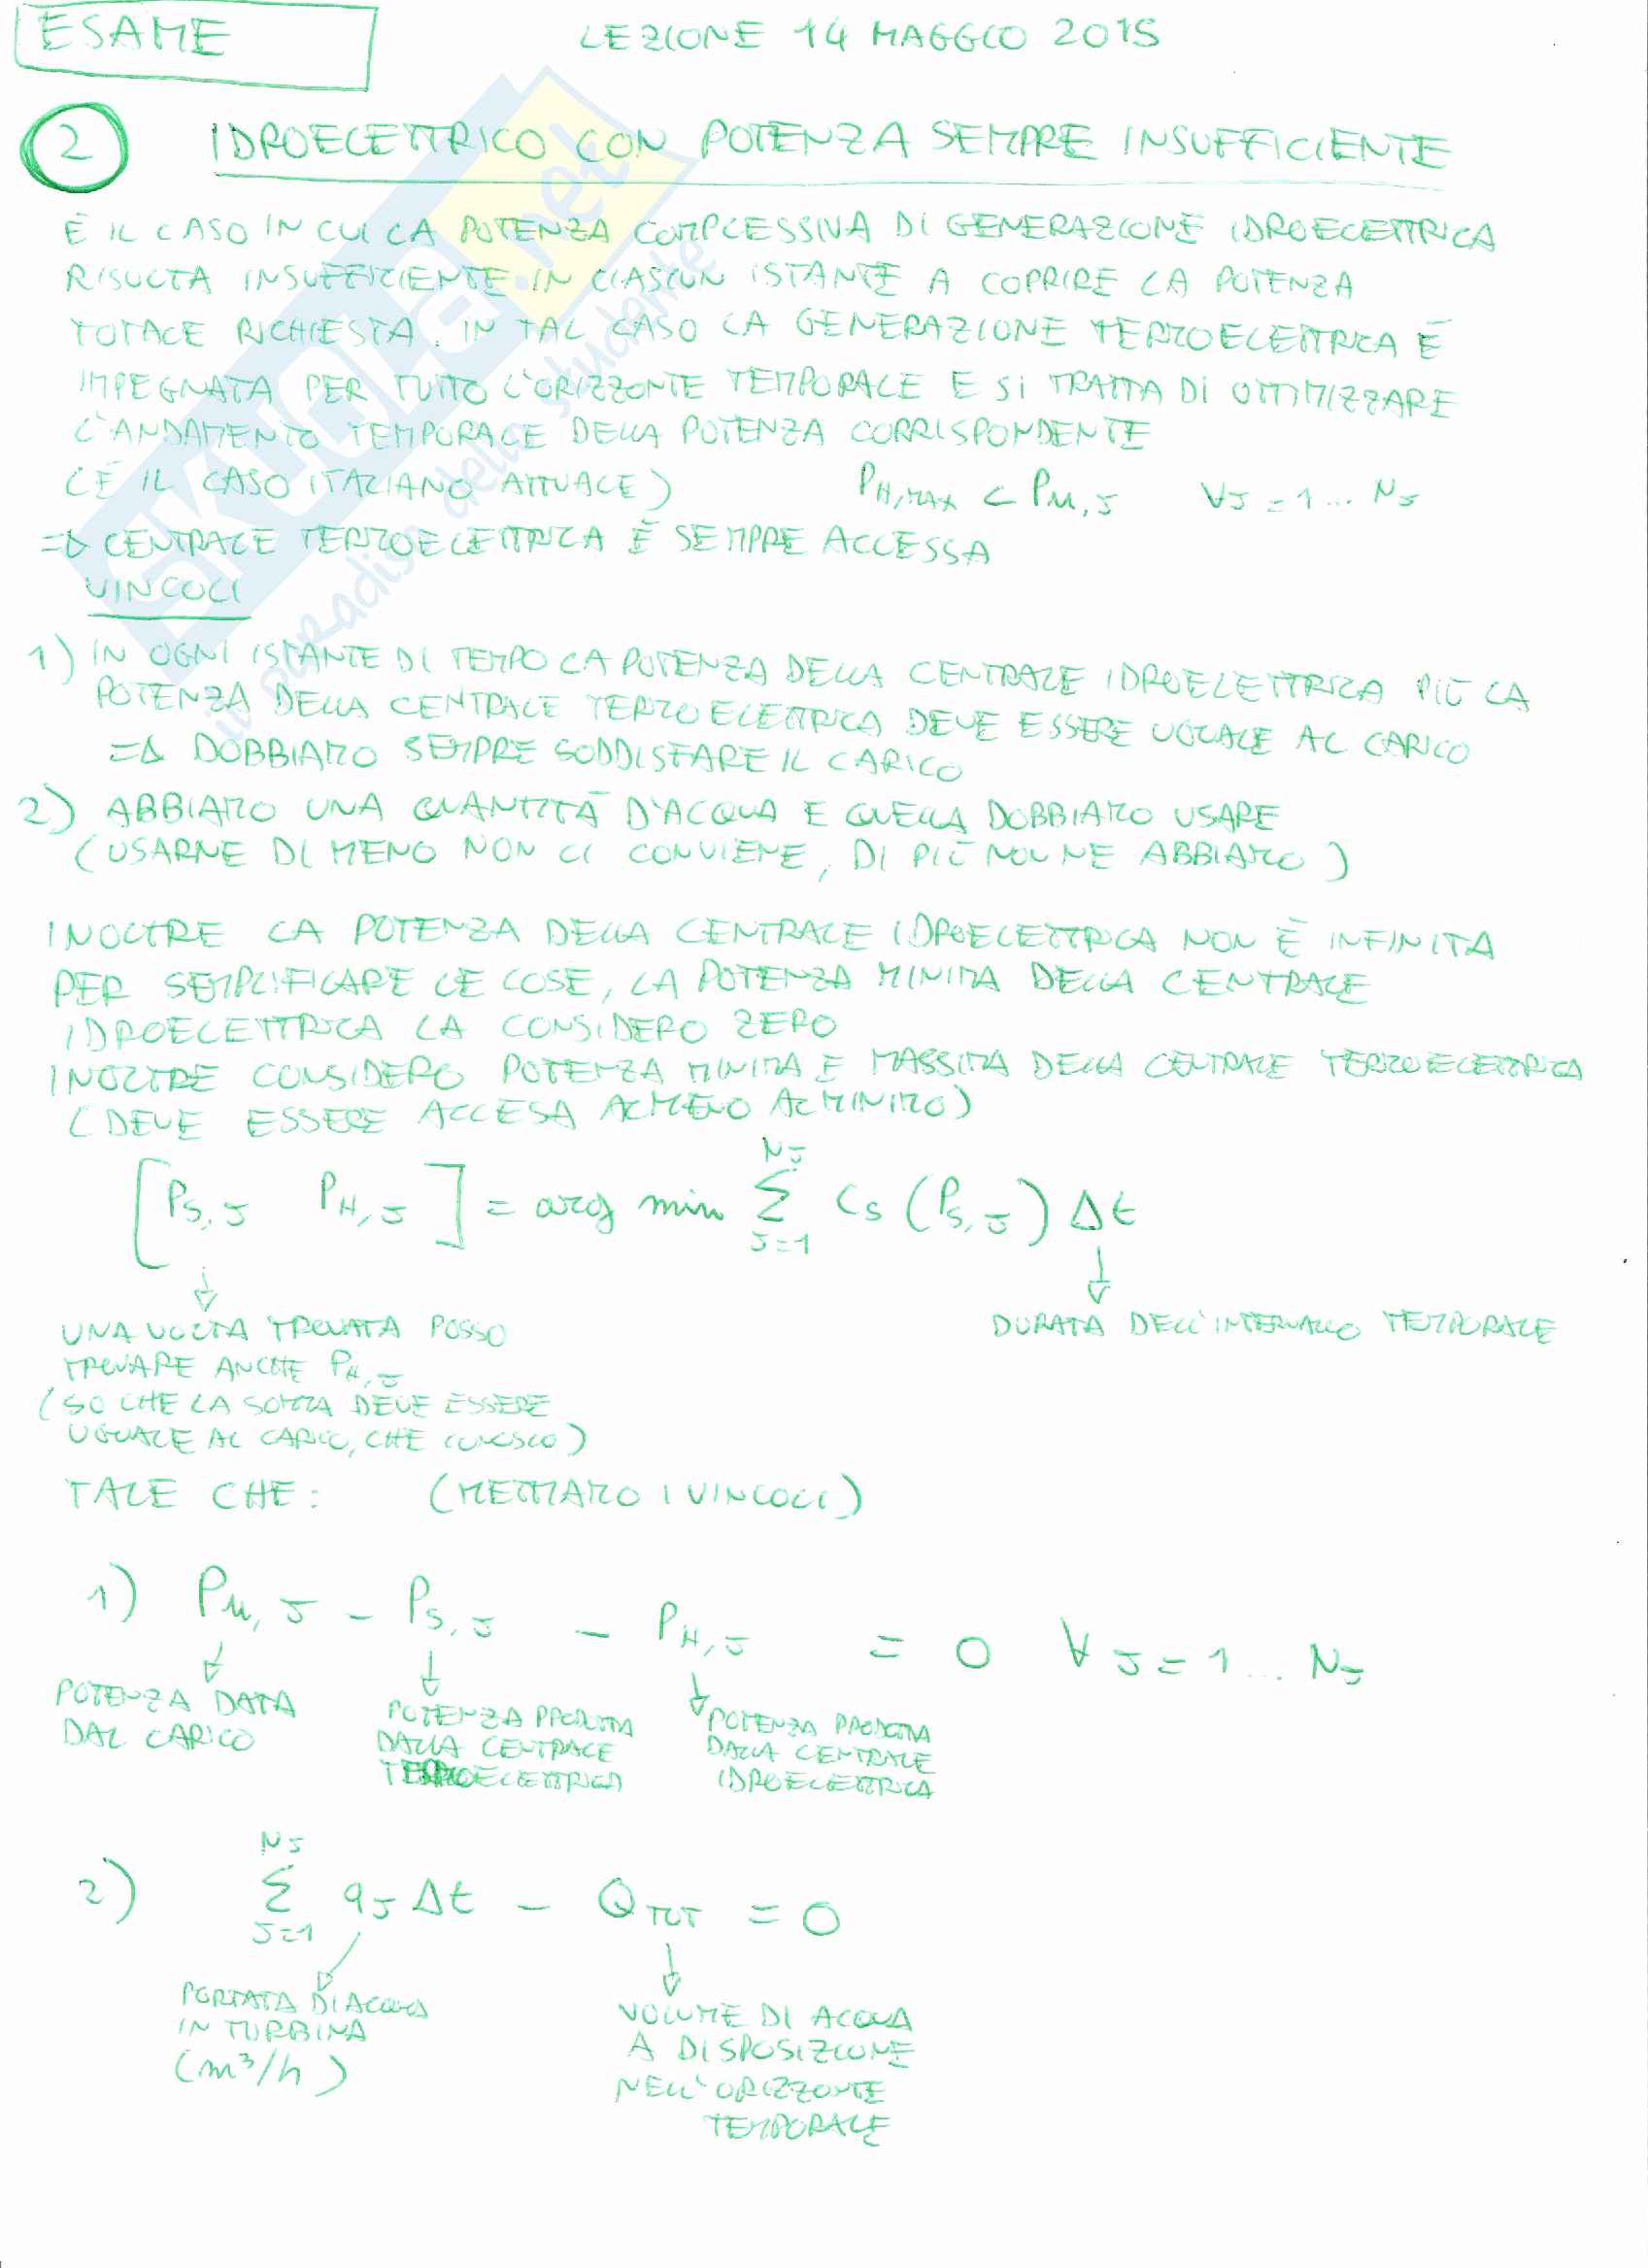 ESAME
LEZIONE 14 MAGGIO 2015
2 IDROELETTRICO CON POTENZA SEMPRE INSUFFICIENTE
È IL CASO IN CUI LA POTENZA COMPLESSIVA DI GENERAZIONE IDROELETTRICA
RISULTA INSUFFICIENTE IN CIASCUN ISTANTE A COPRIRE LA POTENZA
TOTALE RICHIESTA. IN TAL CASO LA GENERAZIONE TERMOELETTRICA È
IMPEGNATA PER TUTTO L'ORIZZONTE TEMPORALE E SI TRATTA DI OTTIMIZZARE
L'ANDAMENTO TEMPORALE DELLA POTENZA CORRISPONDENTE
(È IL CASO ITALIANO ATTUALE) P_H,MAX < P_M,J ∀J = 1 ... N_J
=> CENTRALE TERMOELETTRICA È SEMPRE ACCESSA
VINCOLI
1) IN OGNI ISTANTE DI TEMPO LA POTENZA DELLA CENTRALE IDROELETTRICA PIÙ LA
POTENZA DELLA CENTRALE TERMOELETTRICA DEVE ESSERE UGUALE AL CARICO
=> DOBBIAMO SEMPRE SODDISFARE IL CARICO
2) ABBIAMO UNA QUANTITÀ D'ACQUA E QUELLA DOBBIAMO USARE
(USARNE DI MENO NON CI CONVIENE, DI PIÙ NON NE ABBIAMO)
INOLTRE LA POTENZA DELLA CENTRALE IDROELETTRICA NON È INFINITA
PER SEMPLIFICARE LE COSE, LA POTENZA MINIMA DELLA CENTRALE
IDROELETTRICA LA CONSIDERO ZERO
INOLTRE CONSIDERO POTENZA MINIMA E MASSIMA DELLA CENTRALE TERMOELETTRICA
(DEVE ESSERE ACCESA ALMENO AL MINIMO)
[P_S,J P_H,J] = arg min Σ_{J=1}^{N_J} C_S (P_S,J) Δt
UNA VOLTA TROVATA POSSO
TROVARE ANCHE P_H,J
(SO CHE LA SOMMA DEVE ESSERE
UGUALE AL CARICO, CHE CONOSCO)
DURATA DELL'INTERVALLO TEMPORALE
TALE CHE: (METTIAMO I VINCOLI)
1) P_M,J - P_S,J - P_H,J = 0 ∀ J = 1 ... N_J
POTENZA DATA
DAL CARICO
POTENZA PRODOTTA
DALLA CENTRALE
TERMOELETTRICA
POTENZA PRODOTTA
DALLA CENTRALE
IDROELETTRICA
2) Σ_{J=1}^{N_J} q_J Δt - Q_TOT = 0
PORTATA DI ACQUA
IN TURBINA
(m³/h)
VOLUME DI ACQUA
A DISPOSIZIONE
NELL'ORIZZONTE
TEMPORALE
SKUOLA.net
il paradiso dello studente